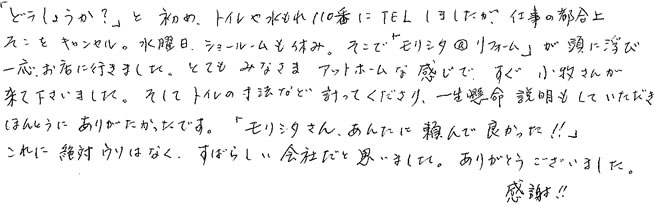 「どうしようか?」と 初め、トイレや水もれ110番にTELしましたが、仕事の都合上
そこをキャンセル。水曜日、ショールームも休み。そこで「モリシタ@リフォーム」が頭に浮び
一応、お店に行きました。とても みなさま アットホームな感じで、すぐ 小牧さんが
来て下さいました。そしてトイレの寸法などを 計ってくださり、一生懸命 説明もしていただき
ほんとうに ありがたかったです。「モリシタさん、あんたに 頼んで良かった!!」
これに 絶対ウソはなく、すばらしい会社だと思いました。ありがとうございました。
感謝!!